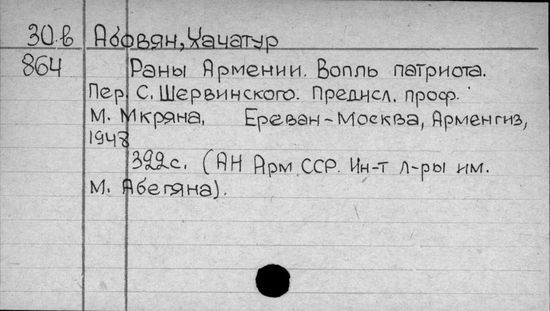 30.в Абовян, Хачатур
864 Раны Армении. Вопль патриота.
Пер. С. Шервинского. Предисл. проф.
М. Мкряна. Ереван-Москва, Арменгиз,
1948
392с. (АН Арм ССР. Ин-т л-ры им.
М. Абегяна).